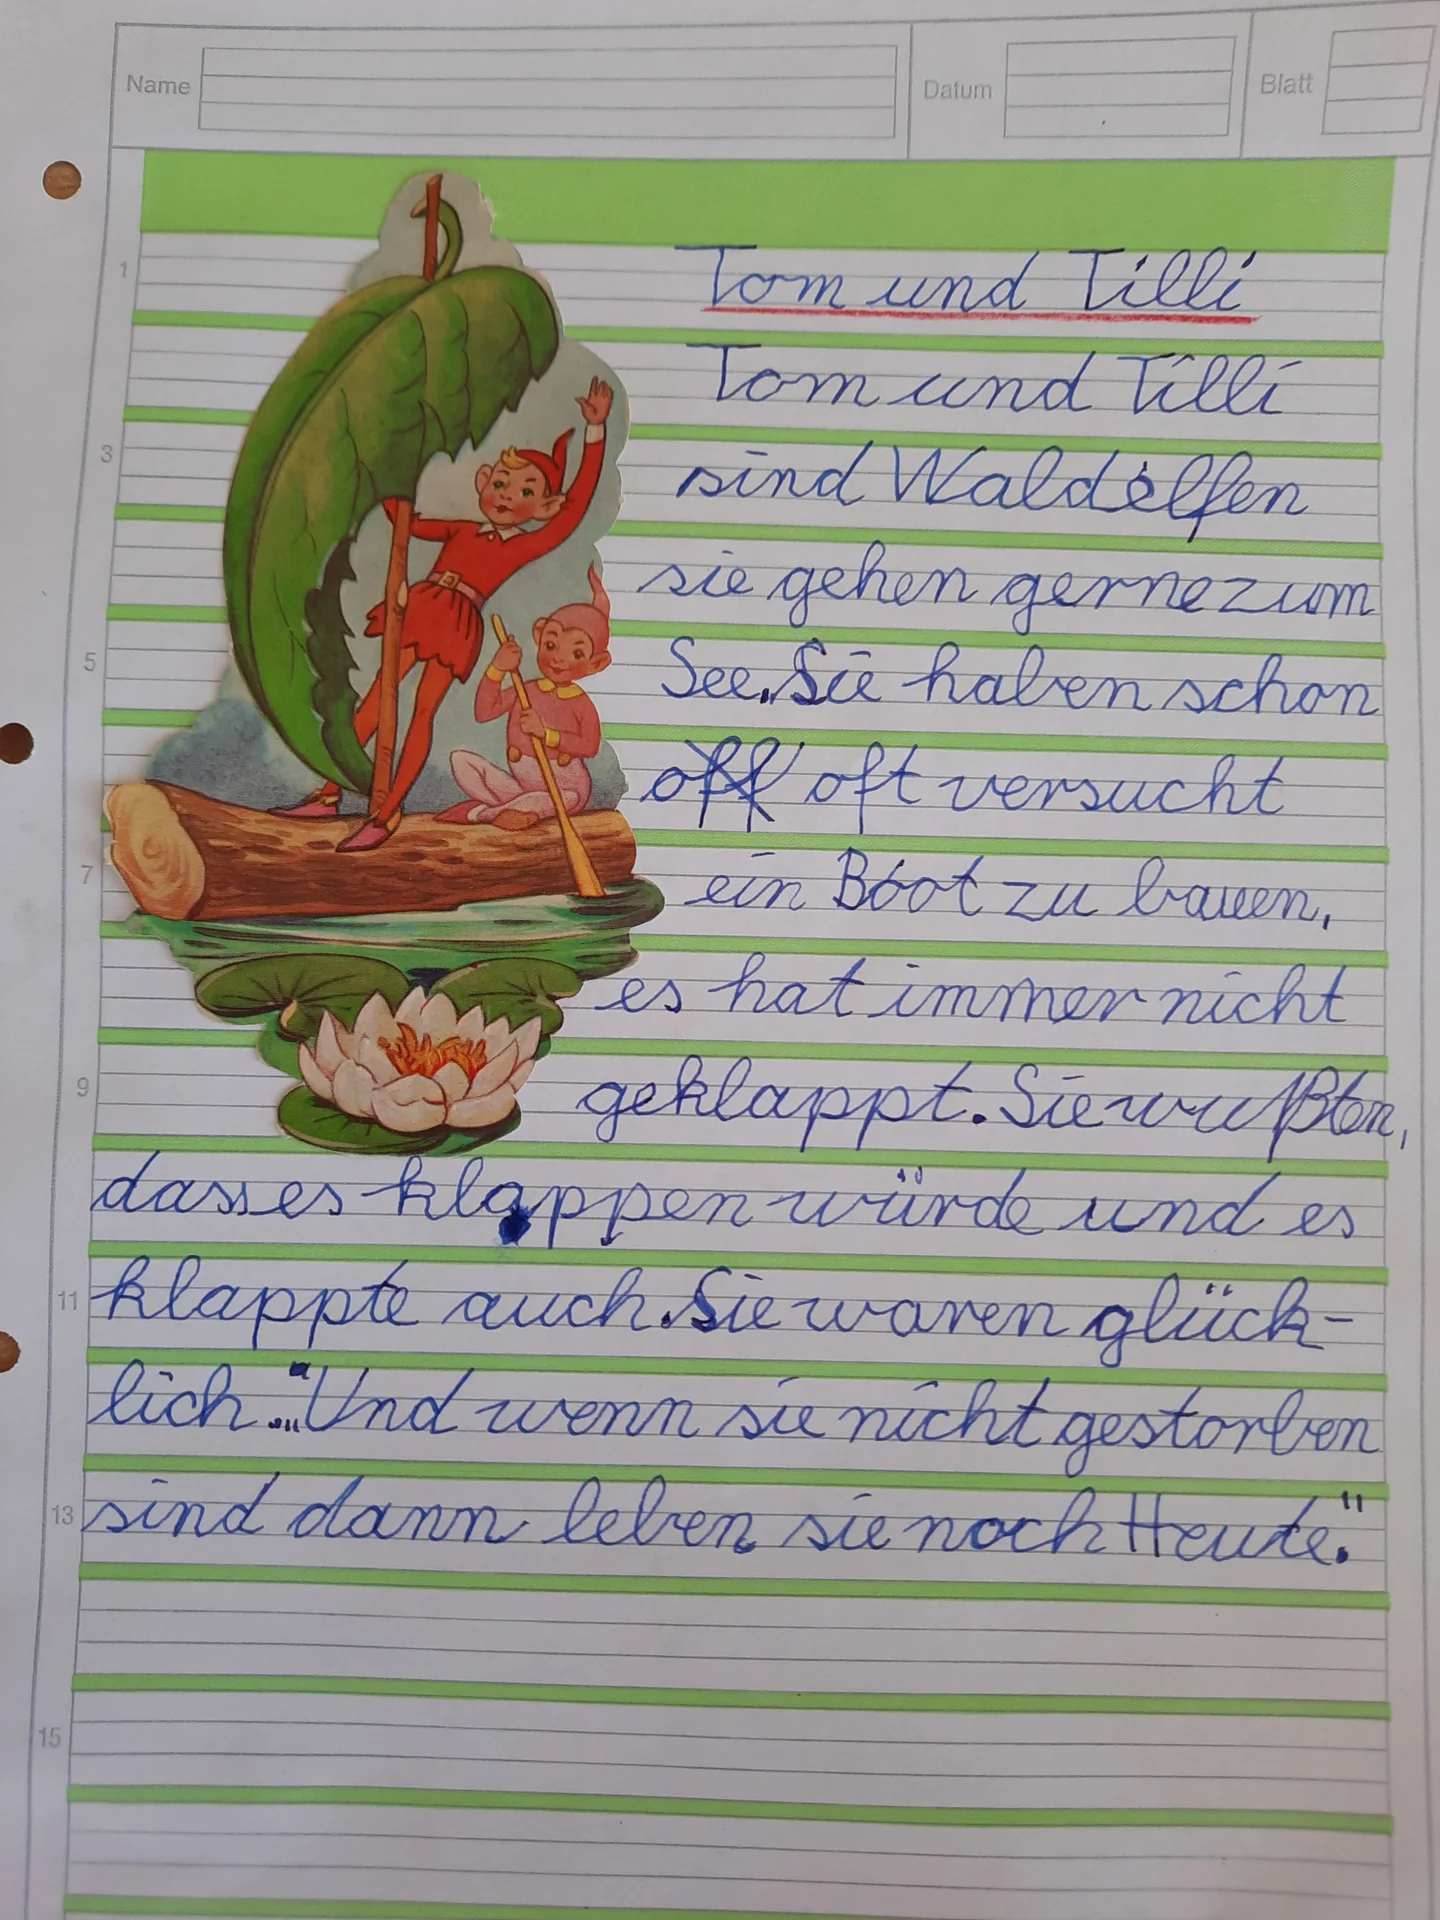 Name Datum Blatt
1 Tom und Tilli
Tom und Tilli
3 sind Waldelfen
sie gehen gerne zum
5 See. Sie haben schon
oft versucht
7 ein Boot zu bauen,
es hat immer nicht
9 geklappt. Sie wußten,
dass es klappen würde und es
11 klappte auch. Sie waren glück-
lich. "Und wenn sie nicht gestorben
13 sind dann leben sie noch Heute."
15